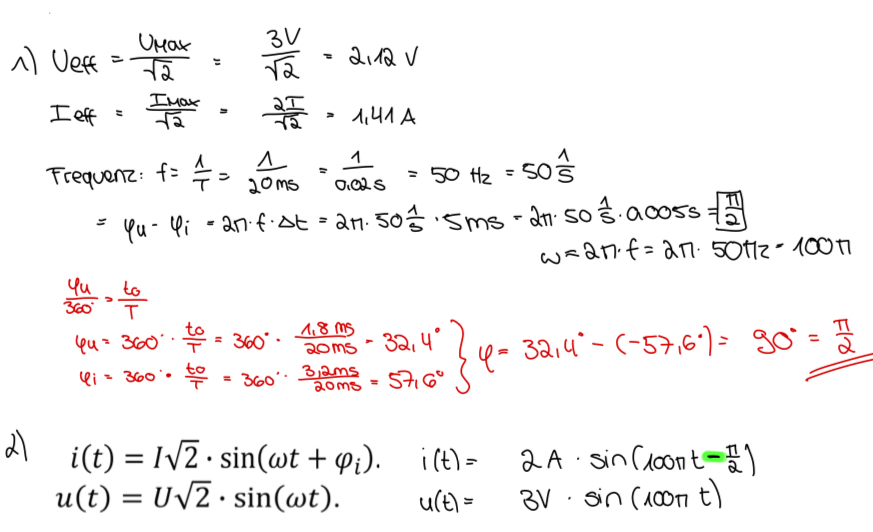 1) Ueff = UMax/√2 = 3V/√2 = 2,12 V
Ieff = IMax/√2 = 2I/√2 = 1,41 A
Frequenz: f = 1/T = 1/20ms = 1/0,02s = 50 Hz = 50 1/s
= φu - φi = 2π · f · Δt = 2π · 50 1/s · 5ms = 2π · 50 1/s · 0,005s = π/2
ω = 2π · f = 2π · 50Hz = 100π
φu/360° = t0/T
φu = 360° · t0/T = 360° · 1,8 ms/20ms = 32,4°
φi = 360° · t0/T = 360° · 3,2ms/20ms = 57,6°
} φ = 32,4° - (-57,6°) = 90° = π/2
2) i(t) = I√2 · sin(ωt + φi). i(t) = 2A · sin(100π t - π/2)
u(t) = U√2 · sin(ωt). u(t) = 3V · sin(100π t)